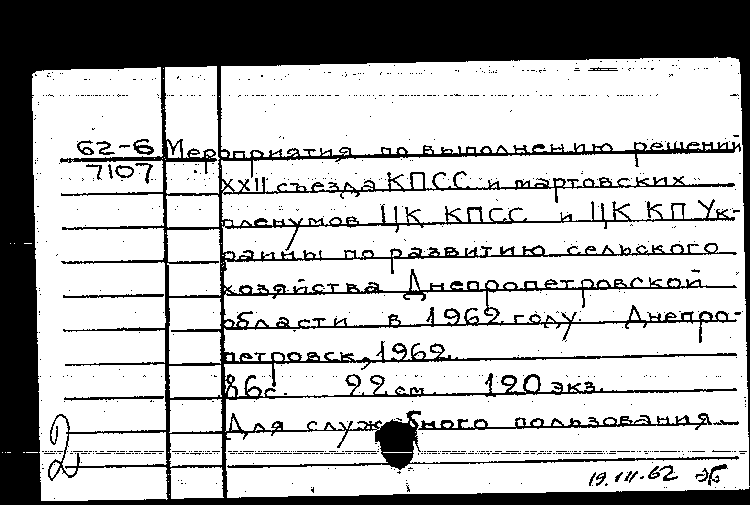 62-6 Мероприятия по выполнению решений
7107
XXII съезда КПСС и мартовских
пленумов ЦК КПСС и ЦК КП Ук-
раины по развитию сельского
хозяйства Днепропетровской
области в 1962 году. Днепро-
петровск, 1962.
86с. 22 см. 120 экз.
Для служебного пользования.
2
19.VII.62